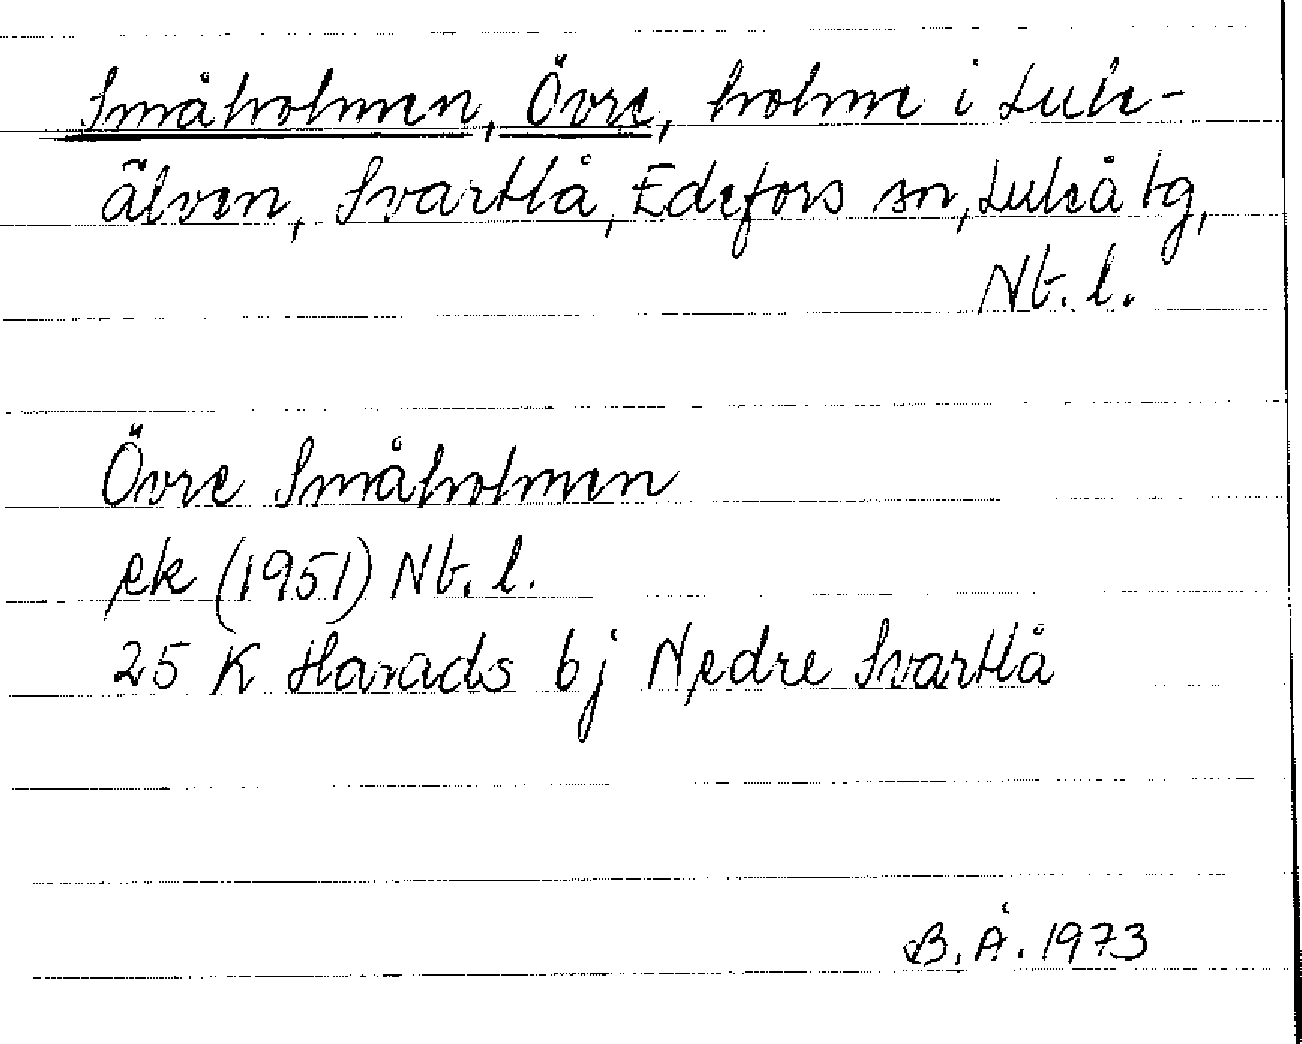 Småholmen, Övre, holme i Lule-
älven, Svartlå, Edefors sn, Luleå tg,
Nb. l.
Övre Småholmen
ek (1951) Nb. l.
25 K Harads bj Nedre Svartlå
B. Å. 1973